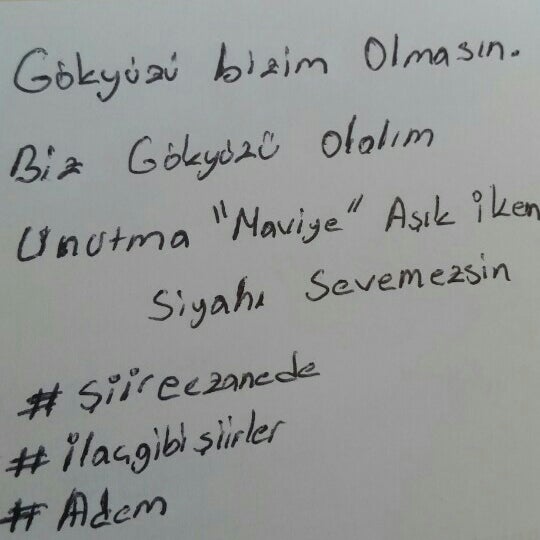 Gökyüzü bizim Olmasın.
Biz Gökyüzü Olalım
Unutma "Maviye" Aşık iken
Siyahı Sevemezsin
# Şiireczanede
# ilaçgibişiirler
# Adem